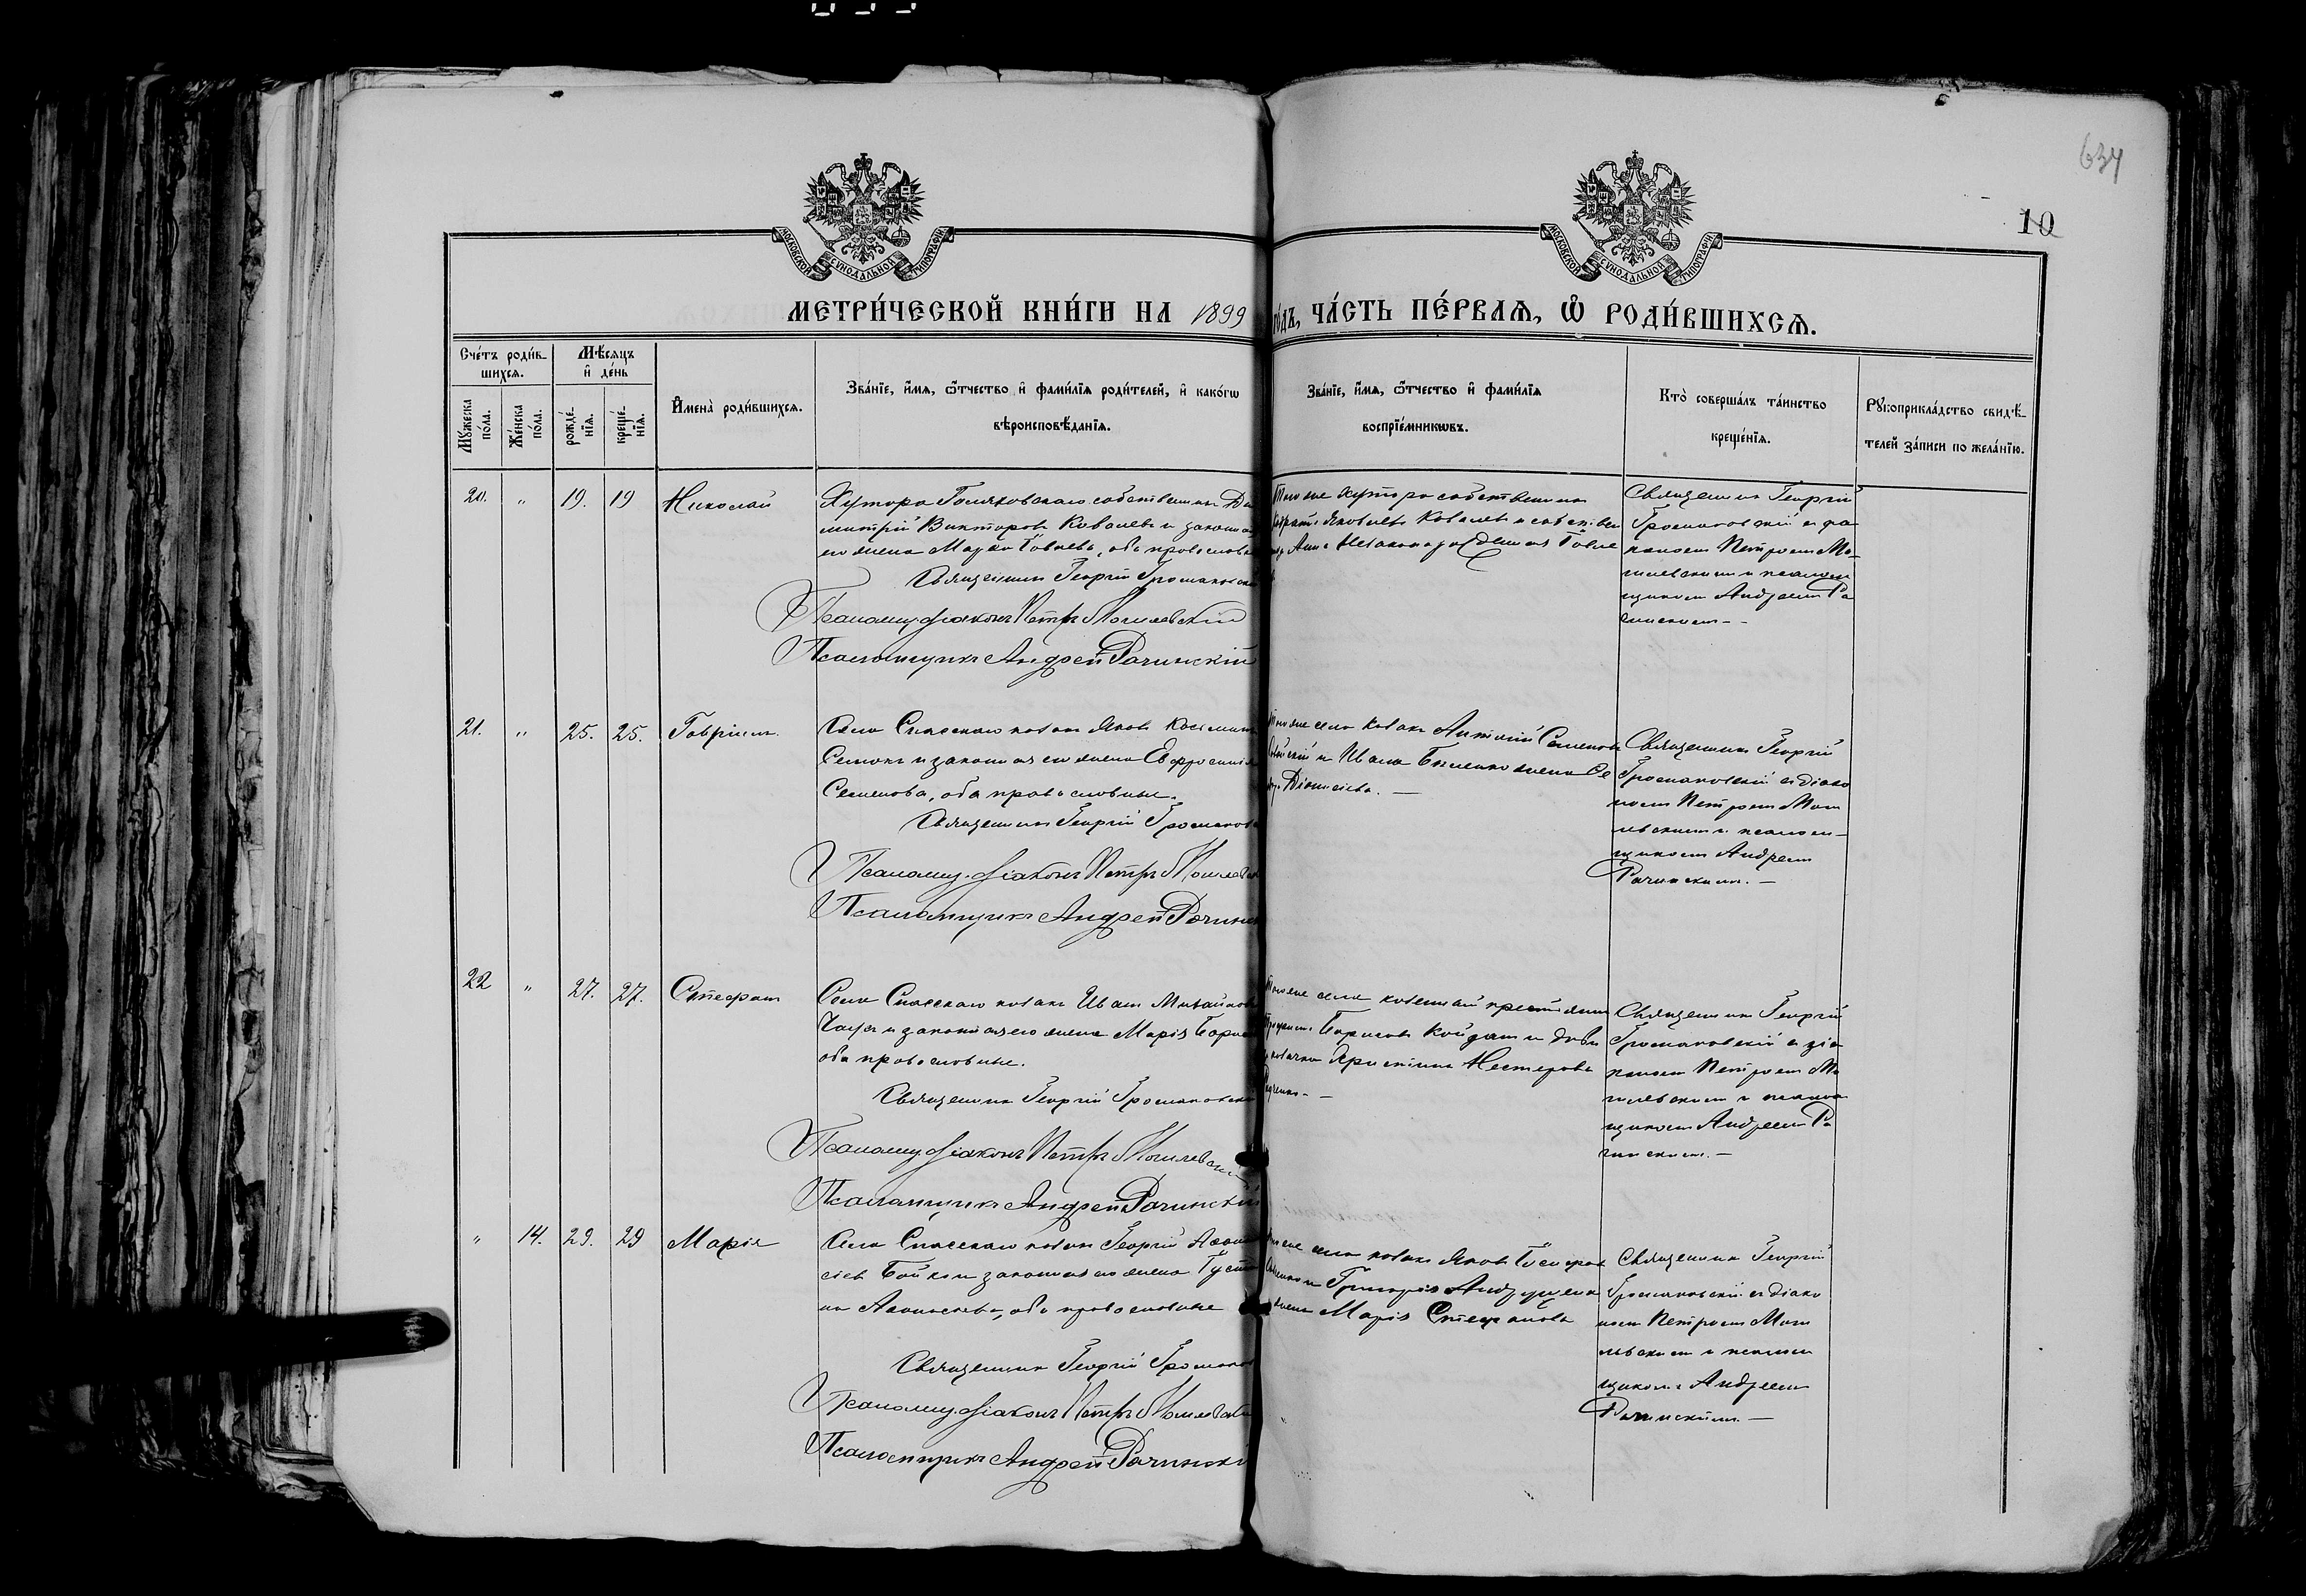 634
10
МОСКОВСКОЙ СѴНОДАЛЬНОЙ ТИПОГРАФІИ
МОСКОВСКОЙ СѴНОДАЛЬНОЙ ТИПОГРАФІИ
МЕТРИ́ЧЕСКОЙ КНИ́ГИ НА 1899 ГО́ДЪ, ЧА́СТЬ ПЕ́РВАѦ, Ѽ РОДИ́ВШИХСѦ.
Сче́тъ роди́в-
шихсѧ.
Мꙋ́жеска по́ла.
Же́нска по́ла.
Мѣ́сѧцъ и҆ де́нь
рожде́-нїѧ.
креще́-нїѧ.
И҆мена̀ роди́вшихсѧ.
Зва́нїе, и҆́мѧ, ѻ҆́тчество и҆ фами́лїѧ роди́телей, и҆ како́гѡ
вѣроисповѣ́данїѧ.
Зва́нїе, и҆́мѧ, ѻ҆́тчество и҆ фами́лїѧ
воспрїе́мникѡвъ.
Кто̀ соверша́лъ та́инство
креще́нїѧ.
Рꙋкоприкла́дство свидѣ́-
телей за́писи по жела́нїю.
20. " 19. 19 Николай
Хутора собственникъ Ди
митрій Викторовъ Ковалевъ и законная
его жена Марѳа оба православ
Священникъ Георгій Громаковск
Псаломщ. діаконъ Петръ Могилевскій
Псаломщикъ Андрей Рачинскій
Того же хутора собственникъ
Яковлевъ Ковалевъ и собствен
Анна Незаконорожденная
Священникъ Георгій
Громаковскій съ діа
кономъ Петромъ Мо-
гилевскимъ и псалом
щикомъ Андреемъ Ра
чинскимъ.-
21. " 25. 25. Гавріилъ.
Села Спасскаго козакъ Яковъ Косминъ
и законная его жена Евфросинія
Семенова, оба православные.
Священникъ Георгій Громаков
Псаломщ. діаконъ Петръ Могилевск
Псаломщикъ Андрей Рачинск
Того же села козакъ Антоній Семеновъ
и Ивана жена Ѳе
Діонисіева. —
Священникъ Георгій
Громаковскій съ діако
номъ Петромъ Моги
левскимъ и псалом-
щикомъ Андреемъ
Рачинскимъ. —
22 " 27. 27. Стефанъ
Села Спасскаго козакъ Иванъ Михайловъ
и законная его жена Марія Борис
оба православные.
Священникъ Георгій Громаковскій
Псаломщ. діаконъ Петръ Могилевскі
Псаломщикъ Андрей Рачинскій
Того же села
Борисовъ и
козачка Христина Нестерова
Священникъ Георгій
Громаковскій съ діа
кономъ Петромъ Мо
гилевскимъ и псалом
щикомъ Андреемъ Ра
чинскимъ. —
" 14. 29. 29 Марія
Села Спасскаго козакъ Георгій Аѳана
сіевъ Бойко и законная его жена Іусти
на Аѳанасіева, оба православные
Священникъ Георгій Громаков
Псаломщ. діаконъ Петръ Могилевскі
Псаломщикъ Андрей Рачинскі
же села козакъ Яковъ
и Григорія
жена Марія Стефанова
Священникъ Георгій
Громаковскій съ діако
номъ Петромъ Моги
левскимъ и псалом
щикомъ Андреемъ
Рачинскимъ. —